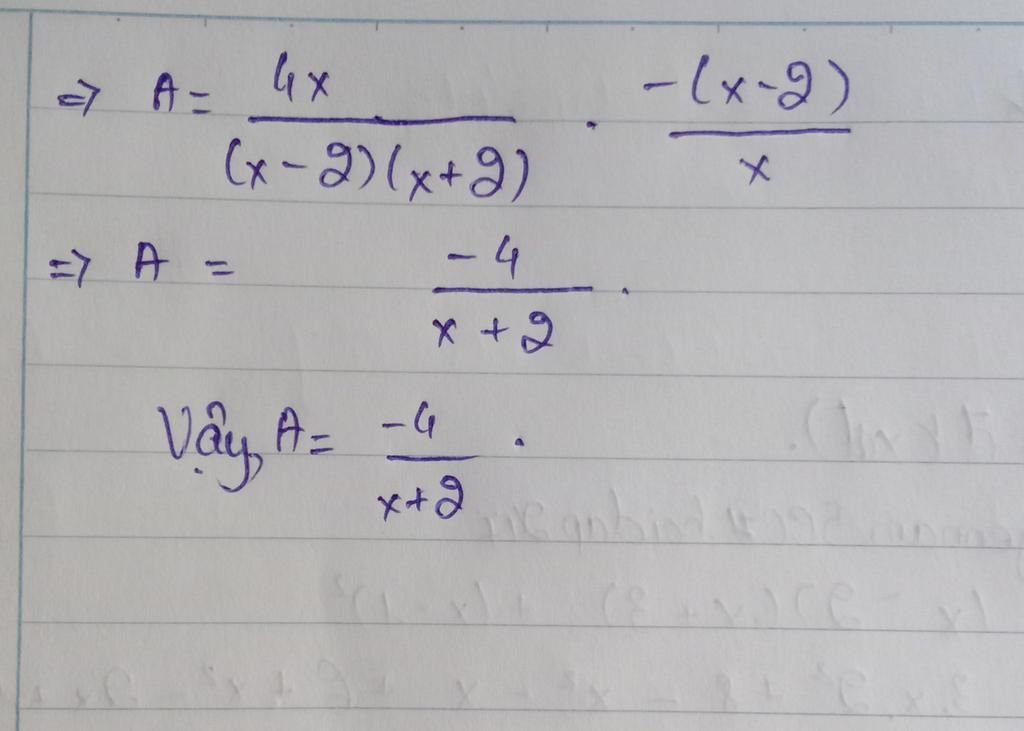 => A = 4x / (x-2)(x+2) . -(x-2) / x
=> A = -4 / x+2 .
Vậy, A = -4 / x+2 .